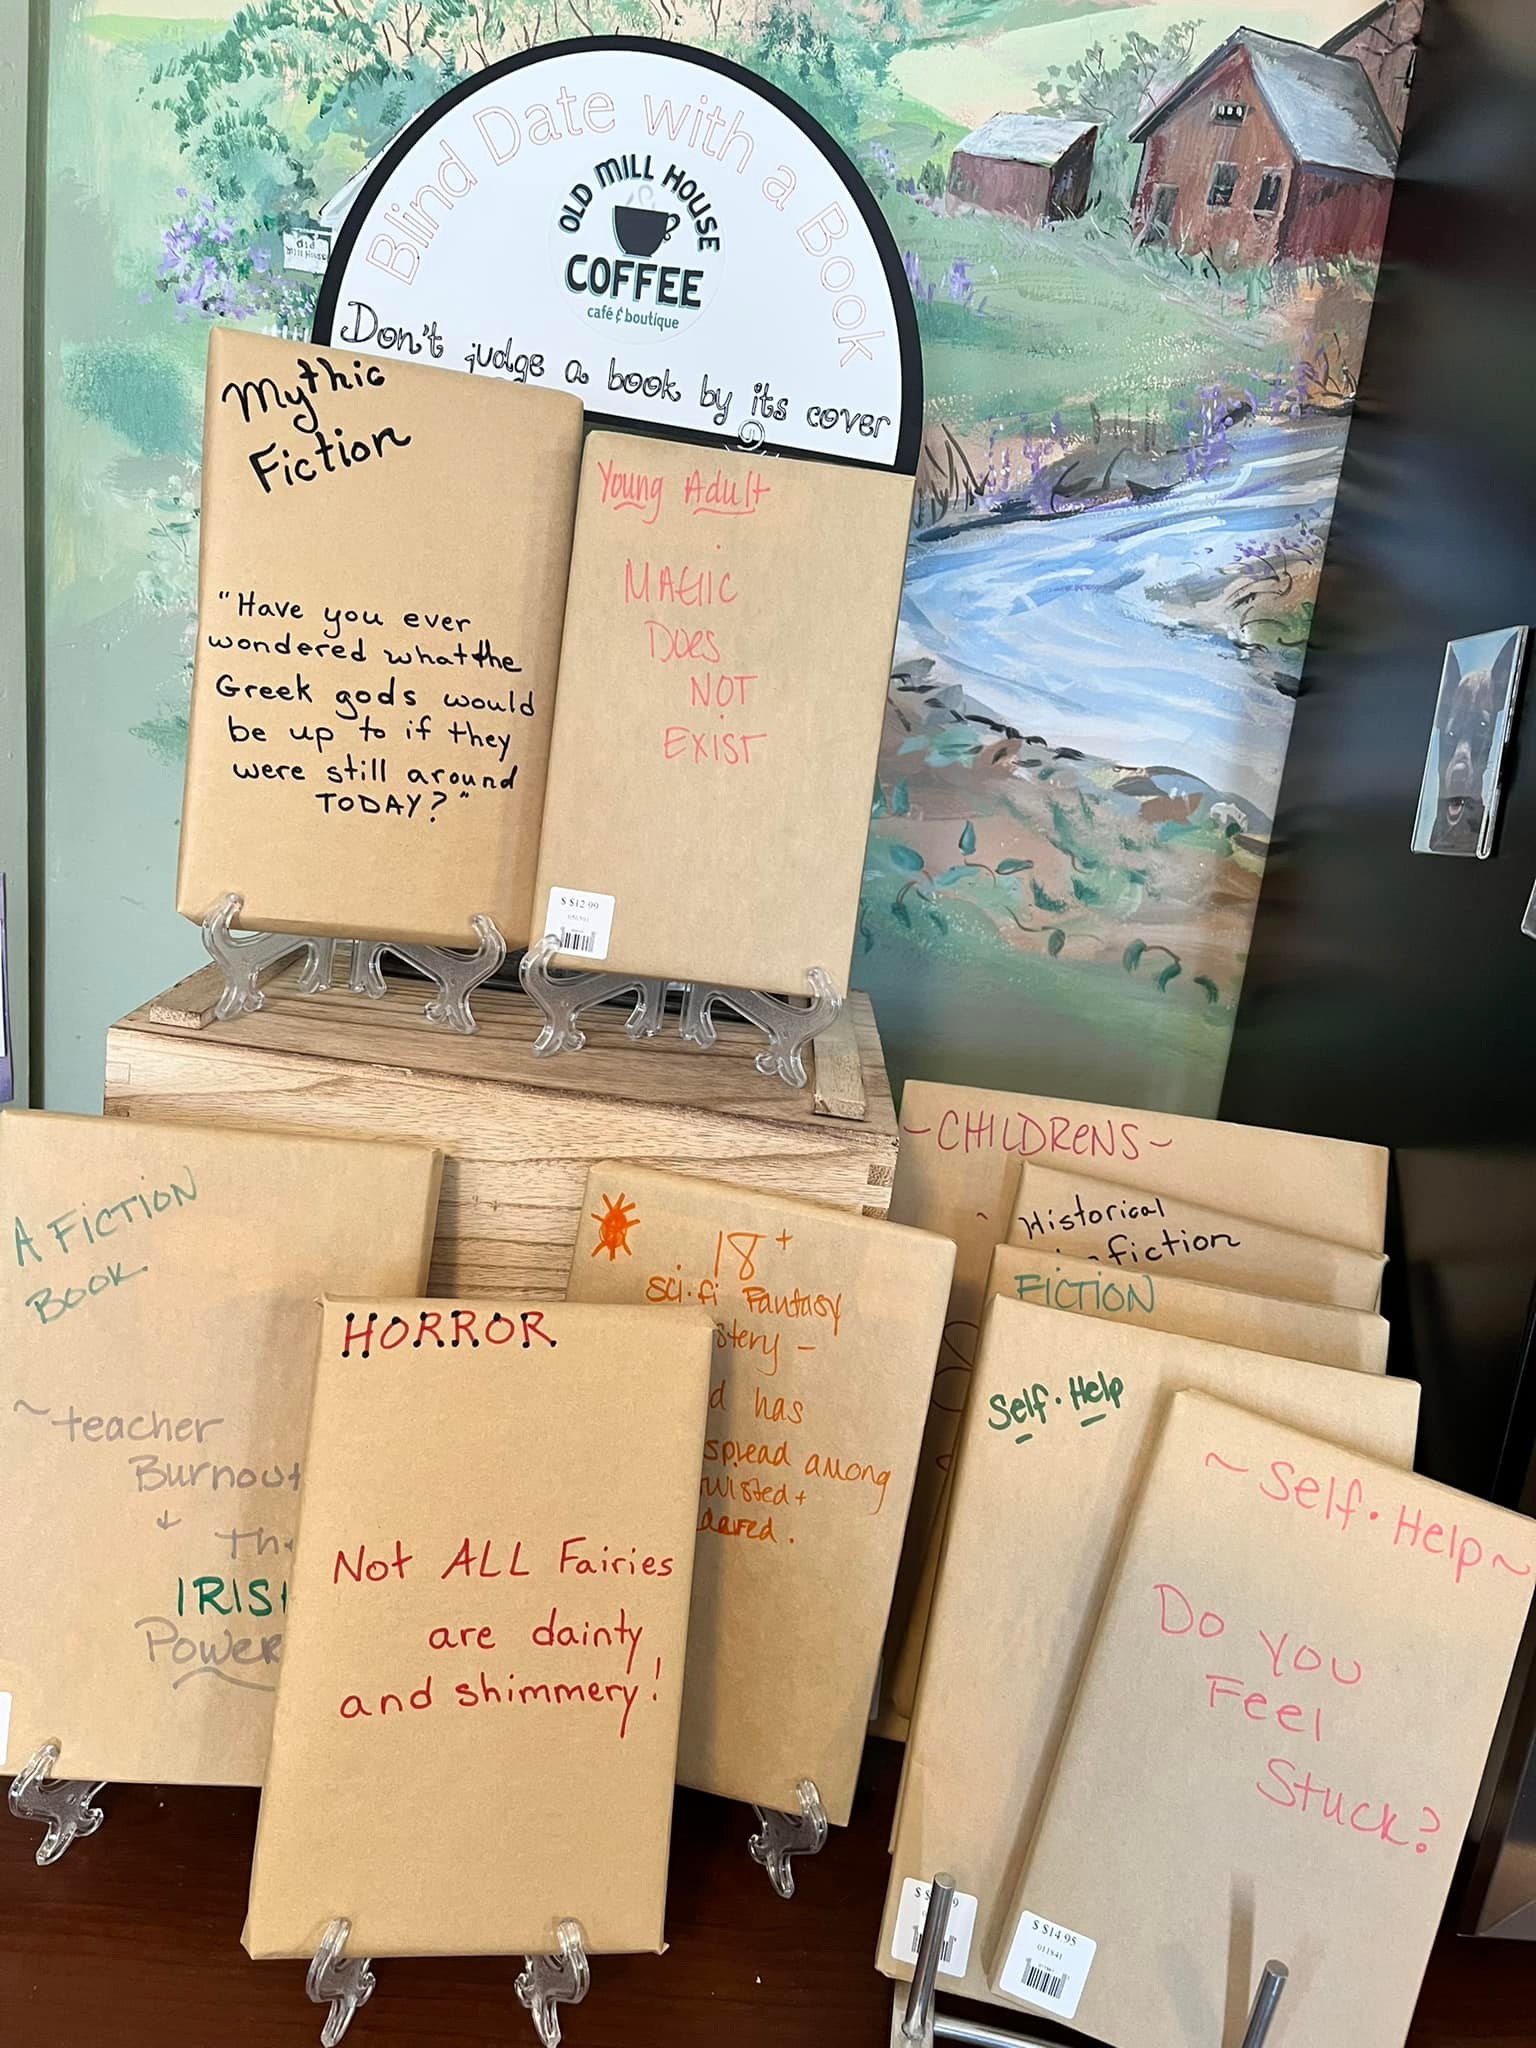 Blind Date with a Book
OLD MILL HOUSE
COFFEE
café & boutique
Don't judge a book by its cover
Old
Mill House
Mythic
Fiction
"Have you ever
wondered what the
Greek gods would
be up to if they
were still around
TODAY?"
Young Adult
MAGIC
Does
NOT
EXIST
$ $12.99
A FICTION
BOOK
~teacher
Burnout
IRIS
Power
HORROR
Not ALL Fairies
are dainty
and shimmery!
18+
Sci-fi Fantasy
has
spread among
~CHILDRENS~
Historical
fiction
FICTION
Self-Help
~Self-Help~
Do you
Feel
Stuck?
$ $14.95
011841